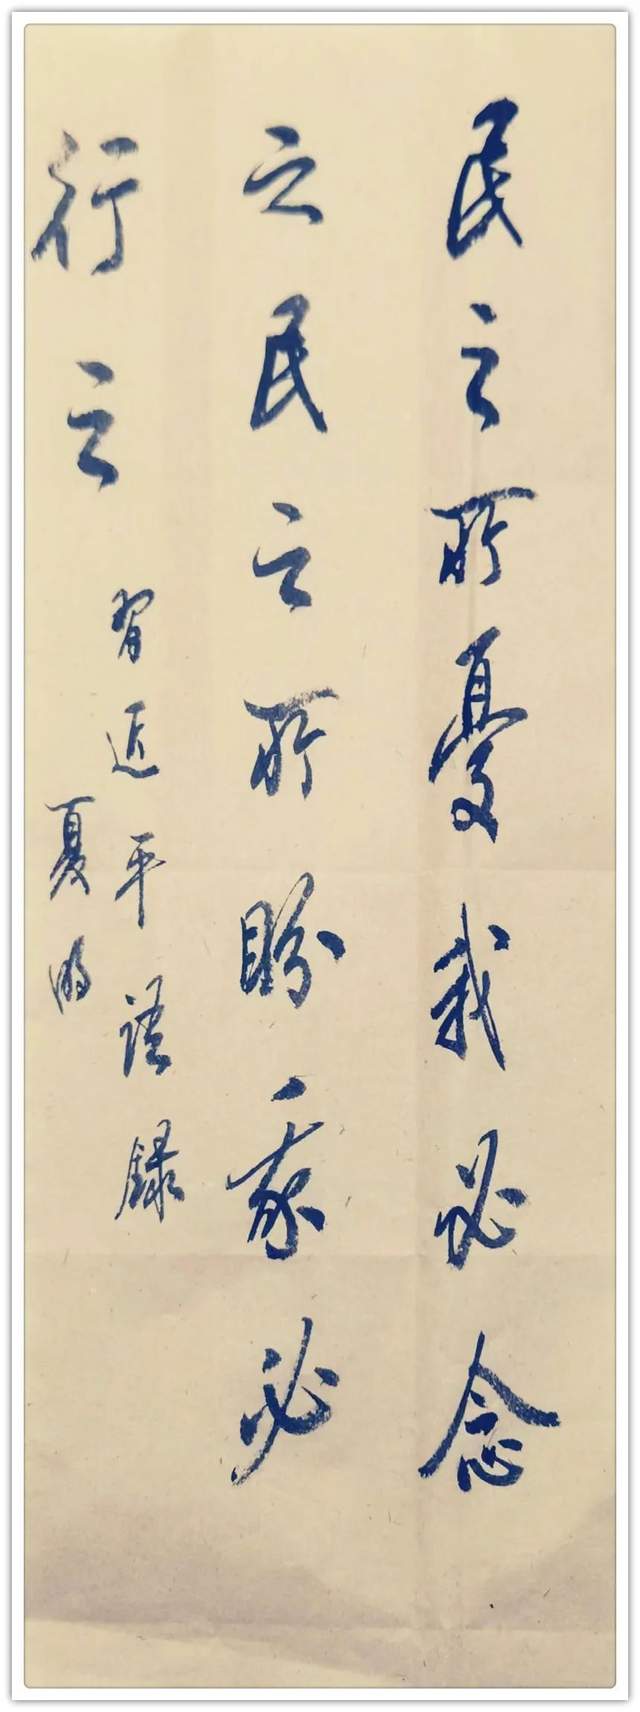 民之所憂我必念
之民之所盼我必
行之
習近平語錄
夏